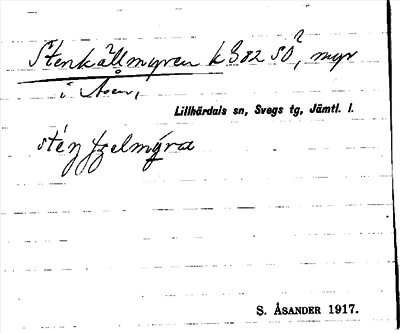 Stenkällmyren k 382 SO?, myr
i Åsen,
Lillhärdals sn, Svegs tg, Jämtl. l.
sténjelmýra
S. ÅSANDER 1917.